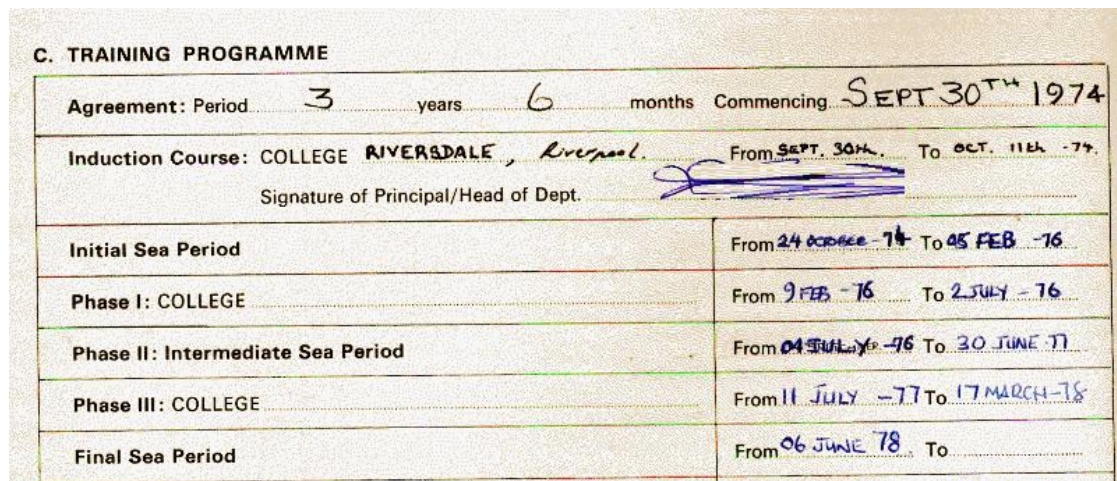 C. TRAINING PROGRAMME
Agreement: Period 3 years 6 months Commencing SEPT 30TH 1974
Induction Course: COLLEGE RIVERSDALE, Riverpool. From SEPT. 30th. To OCT. 11th -74.
Signature of Principal/Head of Dept.
Initial Sea Period From 24 OCTOBER - 74 To 05 FEB -76
Phase I: COLLEGE From 9 FEB - 76 To 2 JULY - 76
Phase II: Intermediate Sea Period From 04 JULY -76 To 30 JUNE 77
Phase III: COLLEGE From 11 JULY -77 To 17 MARCH-78
Final Sea Period From 06 JUNE 78. To